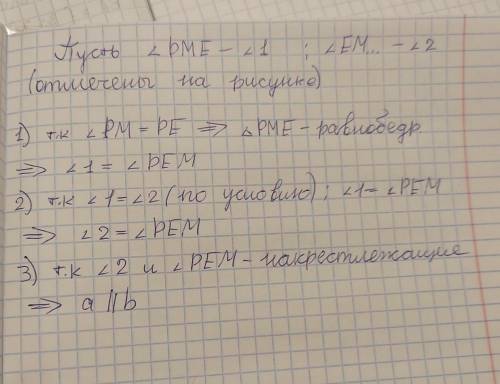 Пусть ∠PME - ∠1 ; ∠EM... - ∠2
(отмечены на рисунке)
1) т.к ∠PM = PE ⇒ △PME - равнобедр.
⇒ ∠1 = ∠PEM
2) т.к ∠1=∠2 (по условию); ∠1= ∠PEM
⇒ ∠2 = ∠PEM
3) т.к ∠2 и ∠PEM - накрестлежащие
⇒ a || b